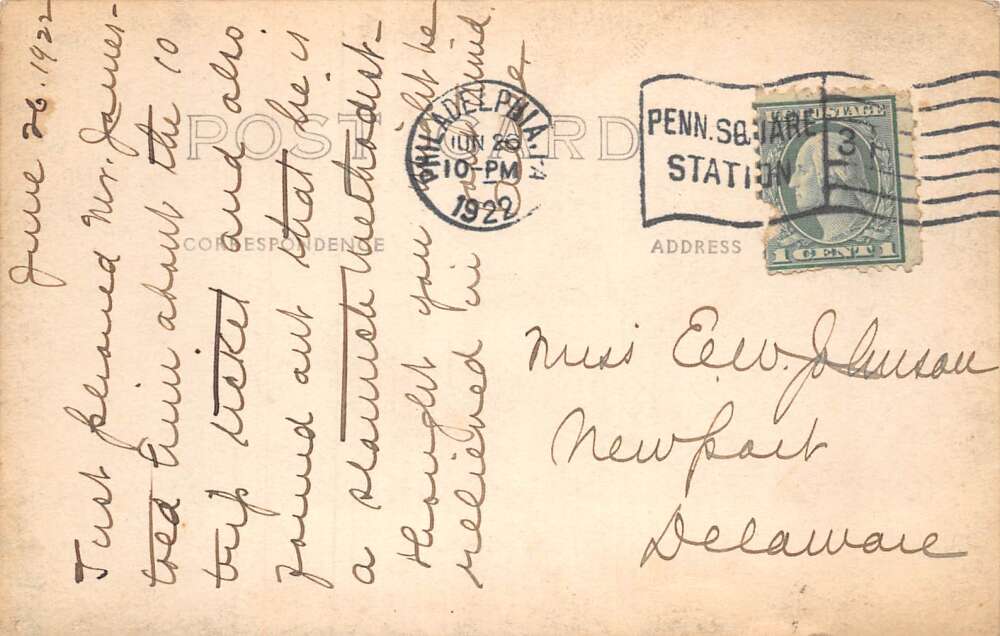 June 26. 1922
Just phoned Mr. James-
told him about the 10
trip ticket and also
found out that he is
a staunch Methodist-
thought you might be
relieved in
your mind
POST CARD
CORRESPONDENCE
ADDRESS
PHILADELPHIA, PA
JUN 26
10-PM
1922
PENN. SQUARE
STATION
3
U.S. POSTAGE
1 CENT 1
Miss E. W. Johnson
Newport
Delaware